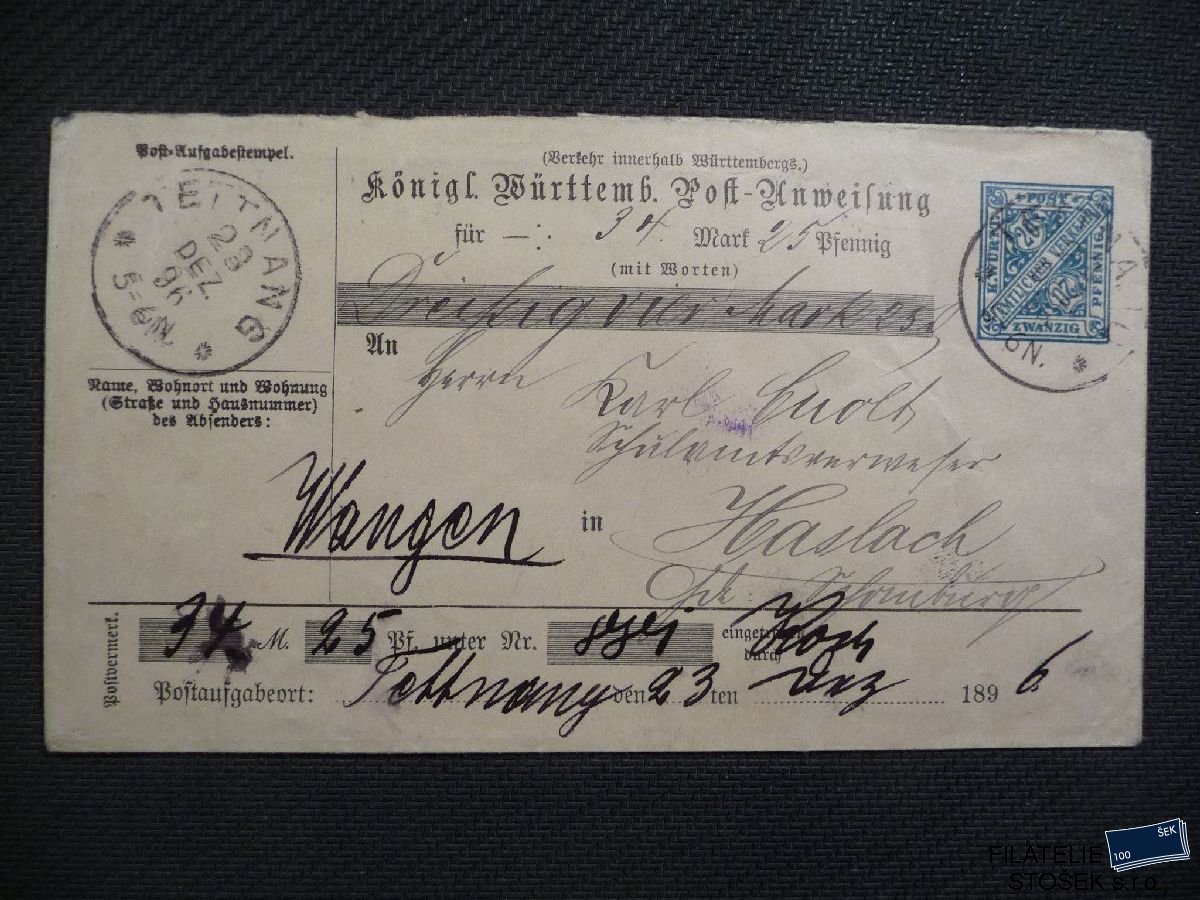 Post-Aufgabestempel.
TETTNANG
23
DEZ
96
5-6N.
(Verkehr innerhalb Württembergs.)
Königl. Württemb. Post-Anweisung
für 34 Mark 25 Pfennig
(mit Worten)
Dreißig vier Mark 25
POST
WÜRTT.
20
AMTLICHER VERKEHR
20
PFENNIG
ZWANZIG
6N.
An
Herrn Karl
Schulamtsverweser
in Haslach
Name, Wohnort und Wohnung
(Straße und Hausnummer)
des Absenders:
Wangen
Postvermerk.
34 M. 25 Pf. unter Nr. eingetragen
durch
Postaufgabeort: Tettnang den 23 ten Dez 1896
100 ŠEK
FILATELIE
STOŠEK s.r.o.